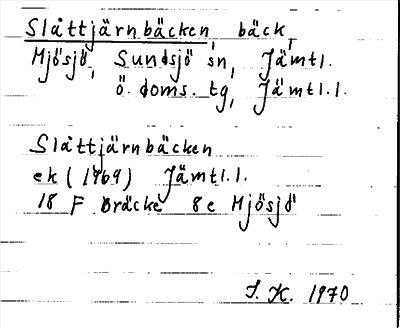 Slåttjärnbäcken, bäck,
Mjösjö, Sundsjö sn, Jämtl.
ö. doms. tg, Jämtl.l.
Slåttjärnbäcken
ek (1969) Jämtl.l.
18 F Bräcke 8e Mjösjö
S. K. 1970